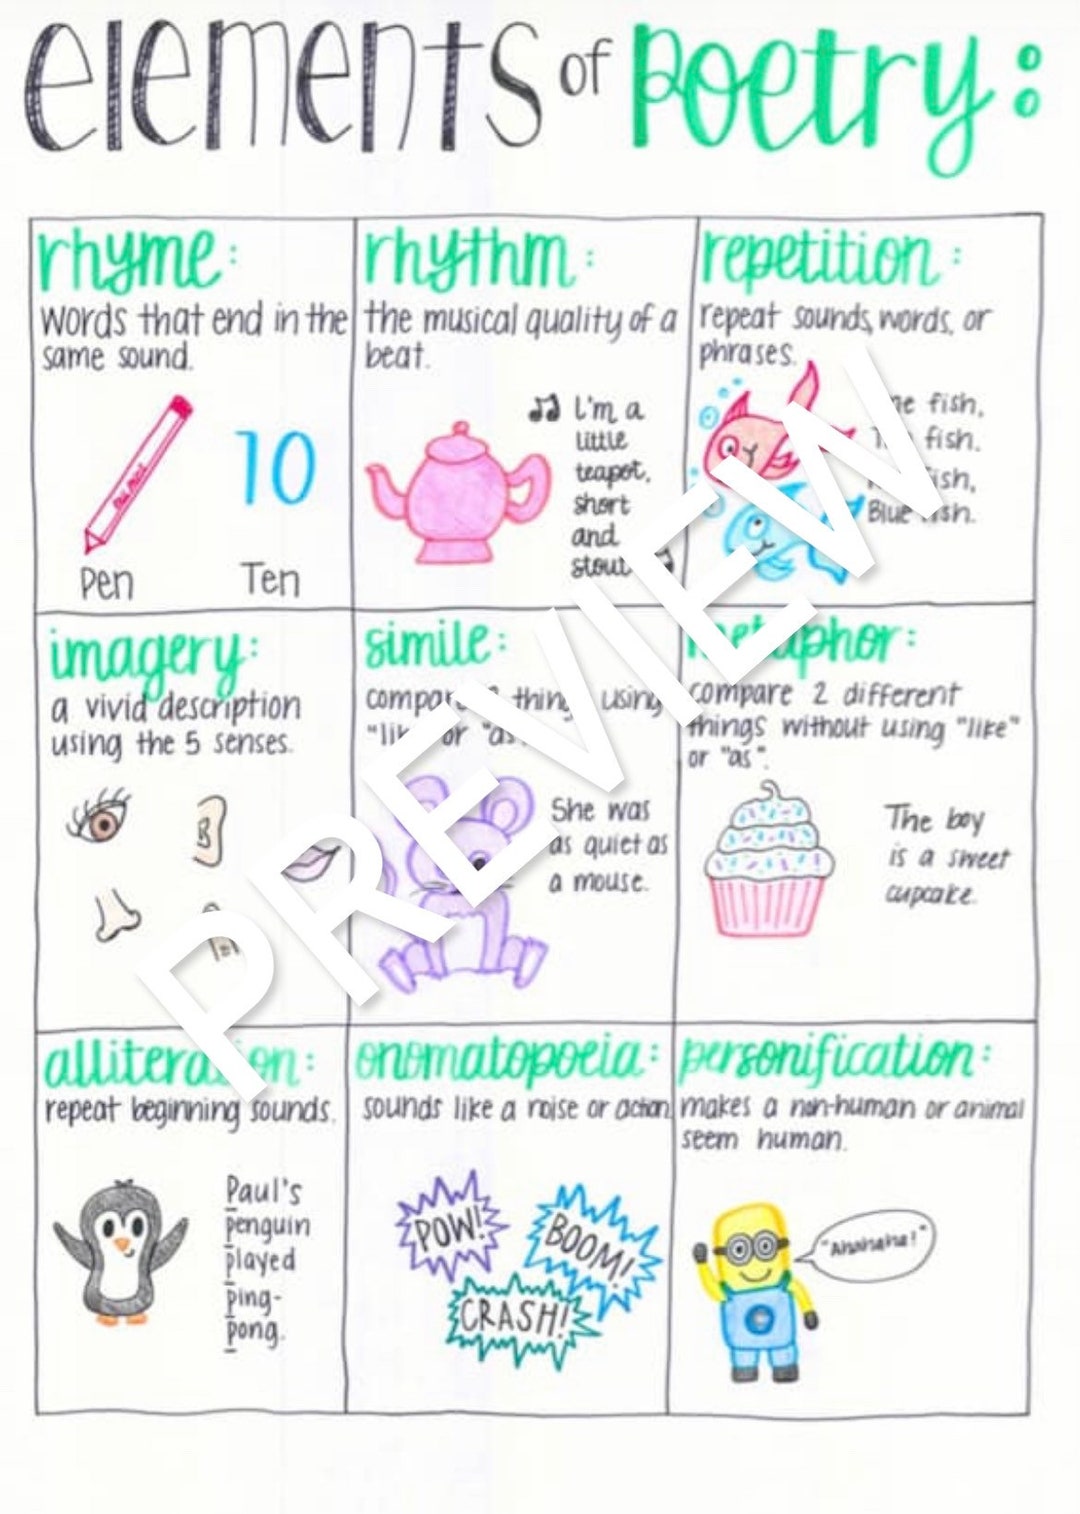 elements of poetry:
rhyme:
words that end in the
same sound.
Pen
10
Ten
rhythm:
the musical quality of a
beat.
I'm a
little
teapot,
short
and
stout
repetition:
repeat sounds, words, or
phrases.
fish,
fish.
Blue fish.
imagery:
a vivid description
using the 5 senses.
simile:
compare 2 things using
"like" or "as".
She was
as quiet as
a mouse.
metaphor:
compare 2 different
things without using "like"
or "as".
The boy
is a sweet
cupcake.
alliteration:
repeat beginning sounds.
Paul's
penguin
played
ping-
pong.
onomatopoeia:
sounds like a noise or action
POW!
BOOM!
CRASH!
personification:
makes a non-human or animal
seem human.
"Ahahaha!"
PREVIEW